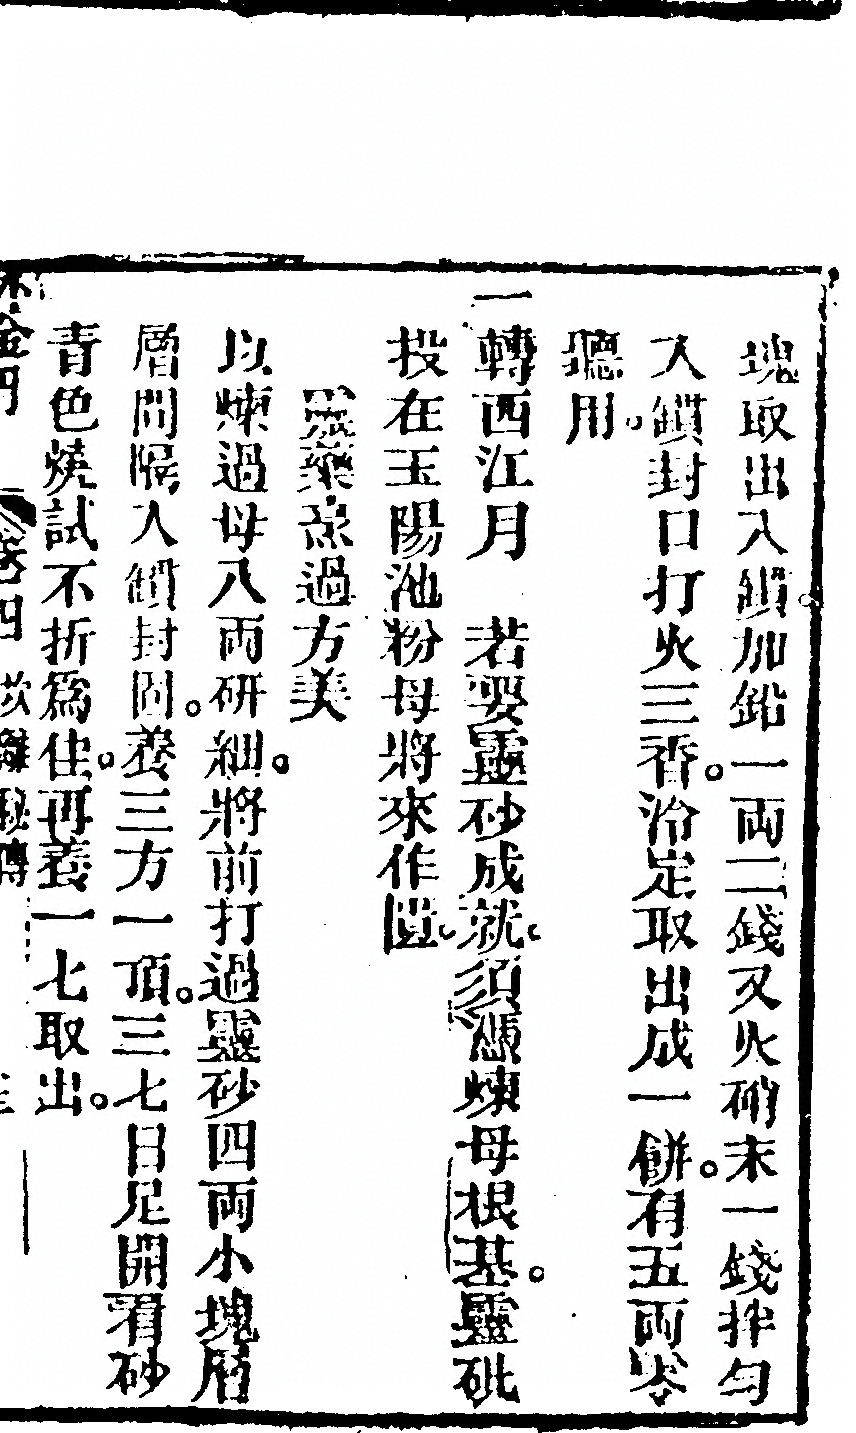 塊取出入鑵加鉛一両二錢又火硝末一錢拌勻
入鑵封口打火三香。冷定取出成一餅。有五両零
聽用。
一轉西江月　若要靈砂成就。須憑煉母根基。靈砒
投在玉陽池粉母將來作匱。
眾藥煮過方美
以煉過母八両研細。將前打過靈砂四両小塊層
層間隔入鑵封固。養三方一頂。三七日足開看砂
青色燒試不折爲佳。再養一七取出。
金丹　卷四　坎離秘傳